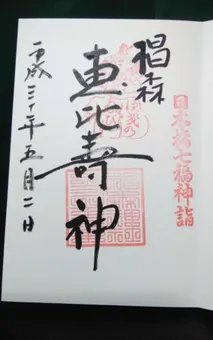 日本橋七福神詣
椙森
恵比壽神
平成三十年五月二日